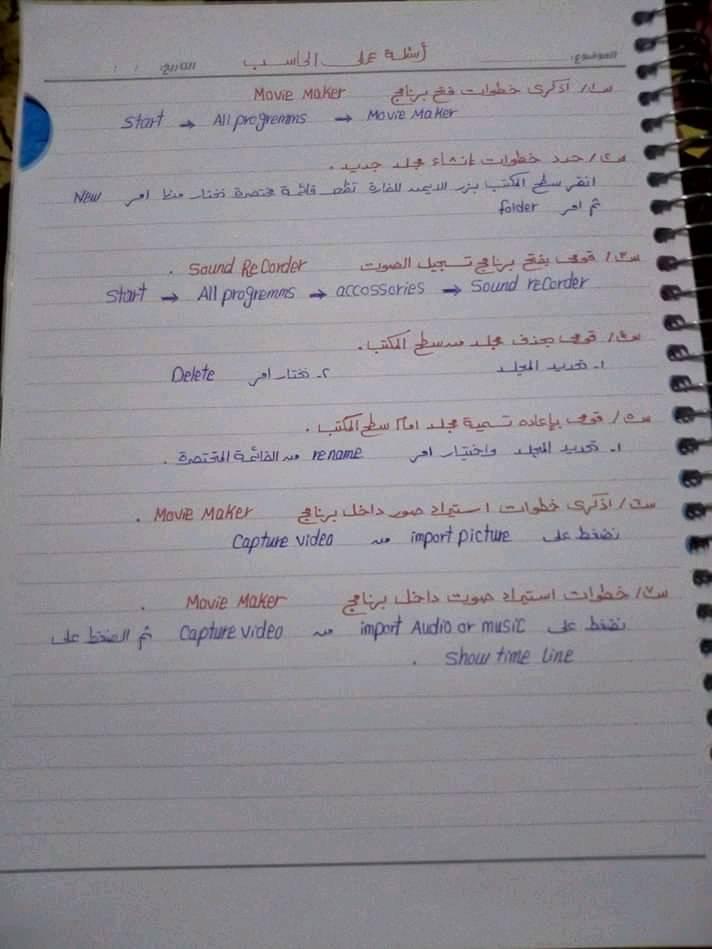 الموضوع: أسئلة على الحاسب التاريخ: / /
س١/ اذكرى خطوات فتح برنامج Movie Maker
Start → All progremms → Movie Maker
س٢/ حدد خطوات إنشاء مجلد جديد .
انقر سطح المكتب بزر الايمن للفارة تظهر قائمة مختصرة نختار منها امر New
ثم امر folder
س٣/ قومى بفتح برنامج تسجيل الصوت Sound Recorder .
Start → All progremms → accossories → Sound recorder
س٤/ قومى بحذف مجلد من سطح المكتب .
١- تحديد المجلد ٢- نختار امر Delete
س٥/ قومى بإعاده تسمية مجلد امام سطح المكتب .
١- تحديد المجلد واختيار امر rename من القائمة المختصرة .
س٦/ اذكرى خطوات استيراد صور داخل برنامج Movie Maker .
نضغط على import picture من Capture video
س٧/ خطوات استيراد صوت داخل برنامج Movie Maker .
نضغط على import Audio or music من Capture video ثم الضغط على
Show time line .